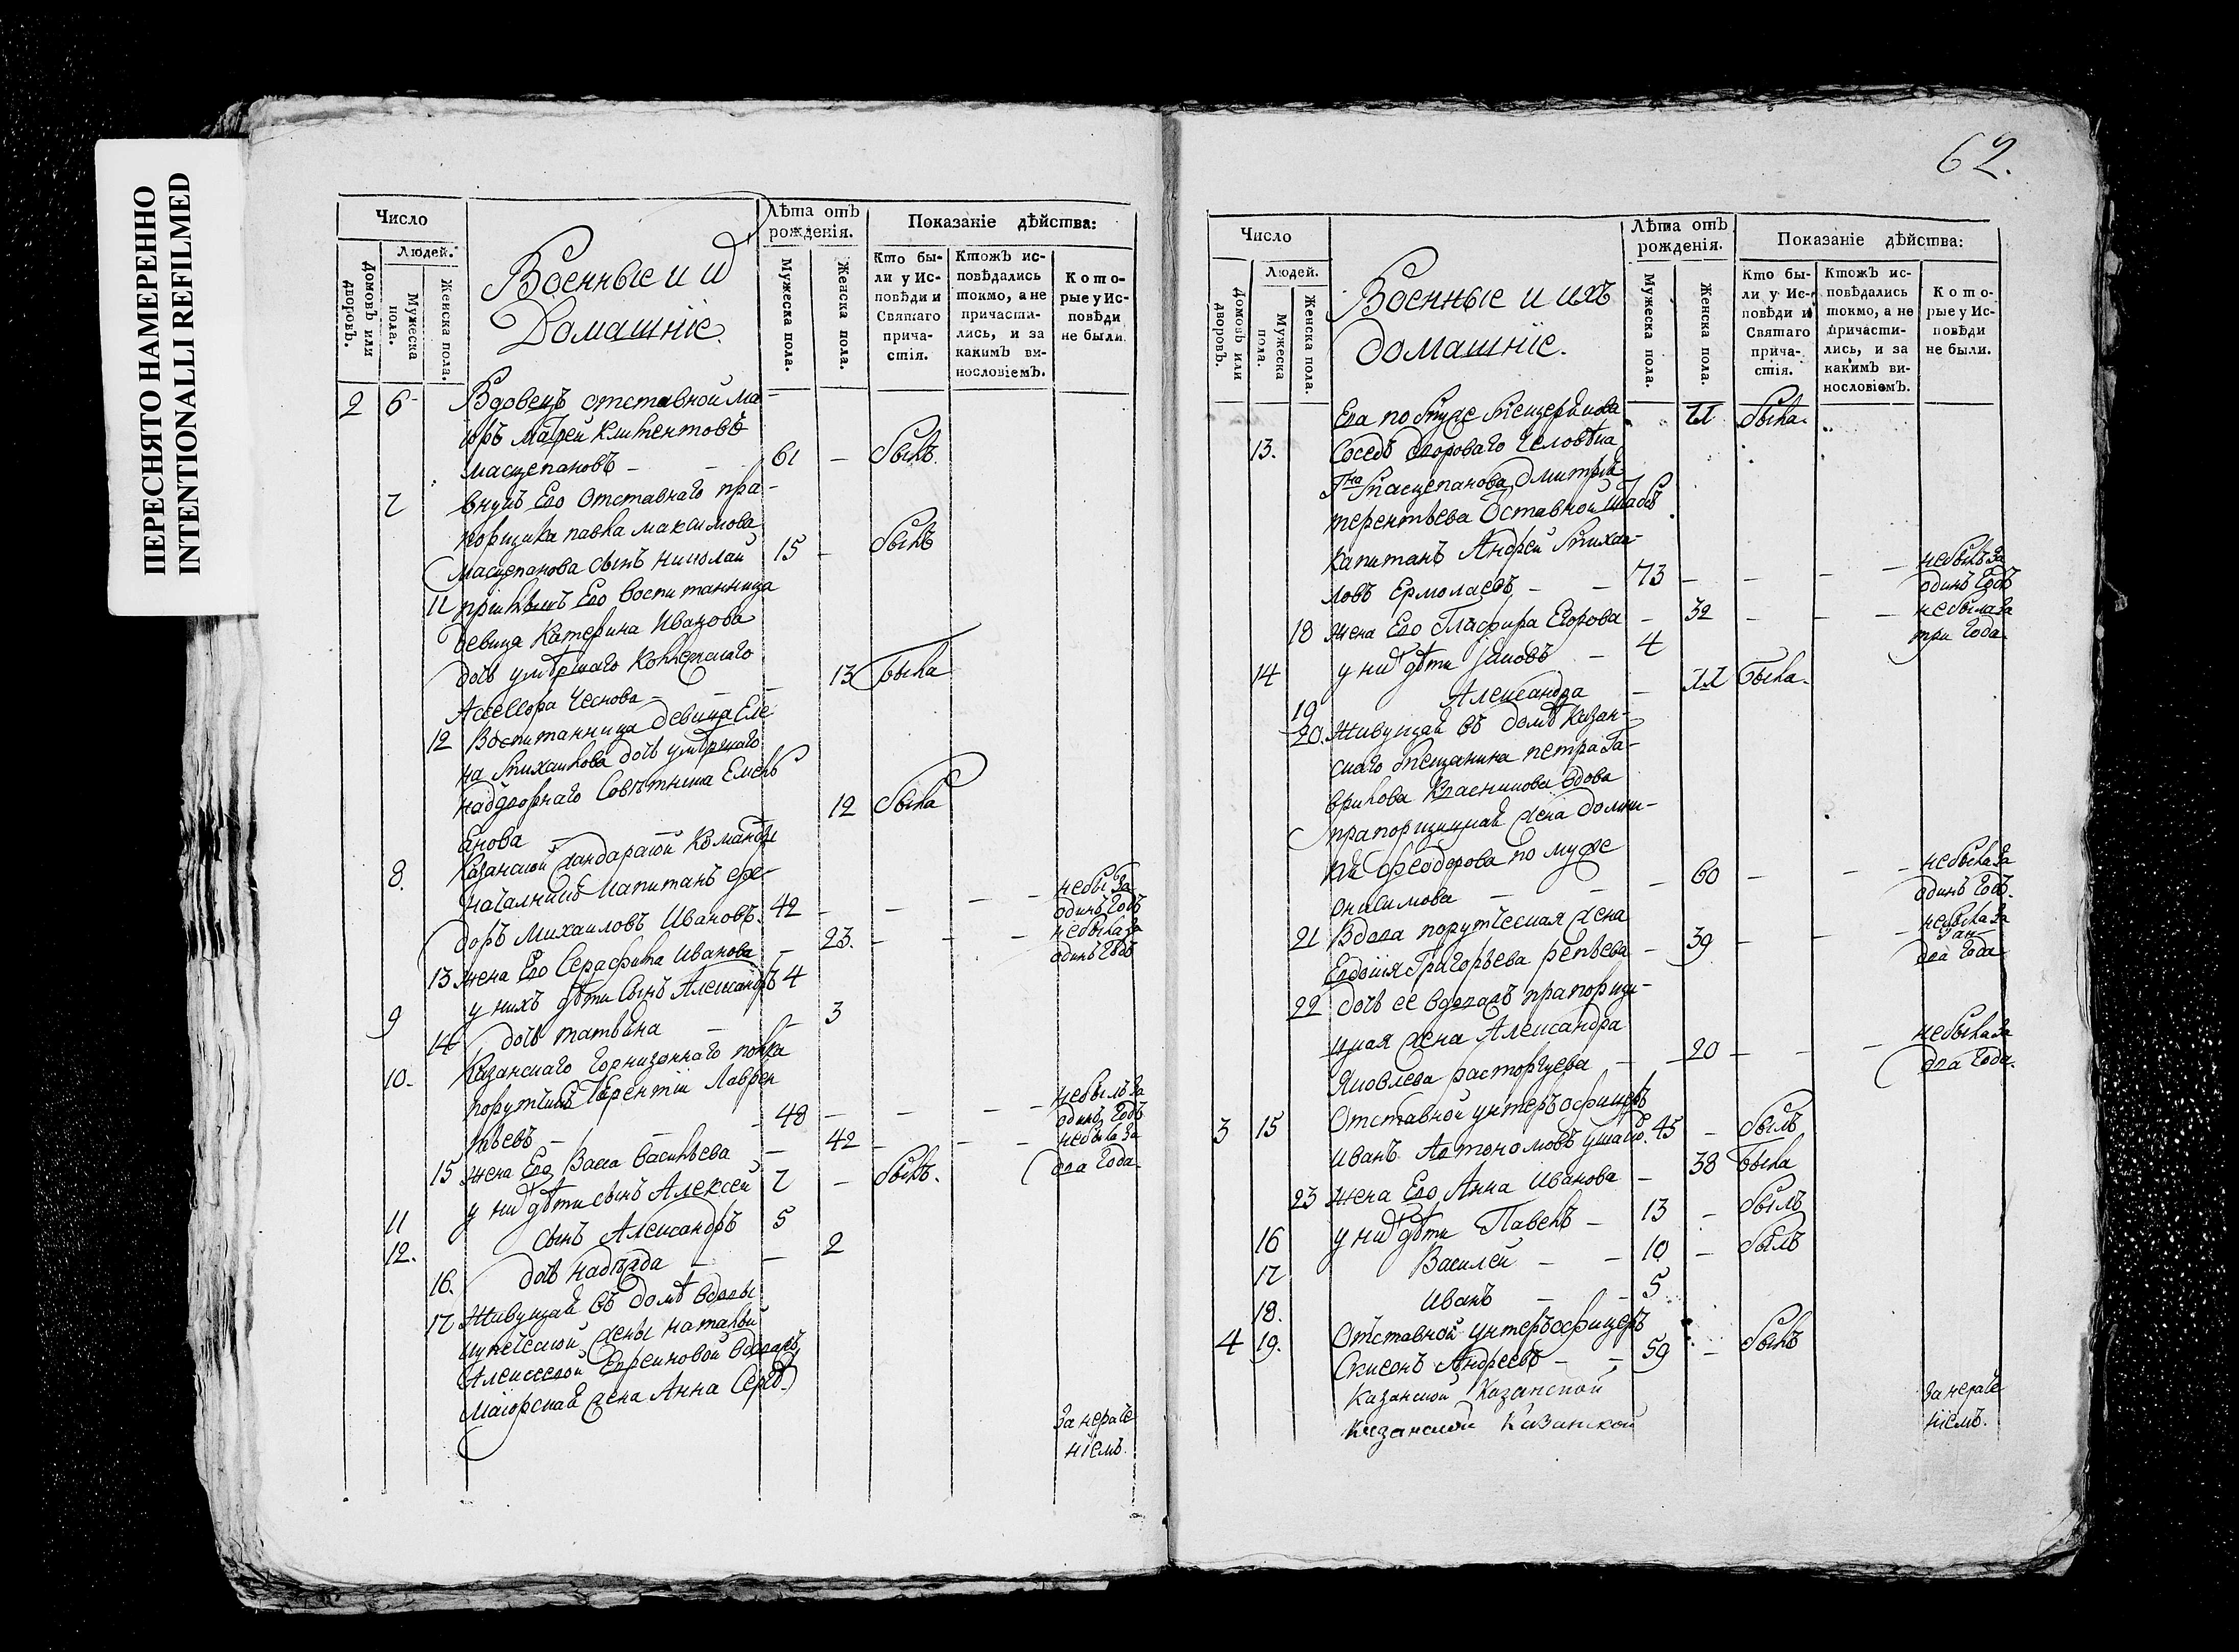 ПЕРЕСНЯТО НАМЕРЕННО
INTENTIONALLI REFILMED
Число
Людей.
Домовъ или дворовъ.
Мужеска пола.
Женска пола.
Военные и и
Домашнiе.
Лѣта отъ рожденiя.
Мужеска пола.
Женска пола.
Показанiе дѣйства:
Кто были у Исповѣди и Святаго причастiя.
Ктожъ исповѣдались токмо, а не причастились, и за какимъ винословiемъ.
Которые у Исповѣди не были.
2 6 Вдовецъ отставной ма-
iоръ
Масцепановъ - - 61 - былъ.
7 внукъ Его Отставнаго пра-
порщика павла максимова
Масцепанова сынъ николай 15 - былъ
11 Его воспитанница
девица Катерина Иванова
дочь умѣршаго Коллежскаго
Ассессора Чеснова - - - 13 Была
12 Воспитанница девица Еле
на Михаилова дочь умѣршаго
надворнаго Совѣтника Емель
янова - - 12 была
8. Казанской жандарской команды
началникъ капитанъ фе-
доръ Михаиловъ Ивановъ. 42 - - - - небы За
одинъ Годъ
13 жена Его Серафима Иванова - 23. - - - небыла За
одинъ Годъ
9 у нихъ дѣти Сынъ Александръ 4
14 дочь татьяна - - 3
10. Казанскаго Горнизоннаго полка
порутчикъ Терентiй Лаврен
тьевъ - - - 48 - - - - небылъ За
одинъ Годъ
15 жена Его Васса Васильева - 42 - - - небыла За
два Года.
11 у ни дѣти сынъ Алексей 7 - былъ.
12. сынъ Александръ 5
16. дочь надѣжда - - 2
17 Живущая въ домѣ вдовы
купеческой жены натальи
Алексеевой Ефреиновой вдовахъ
Маiорская жена Анна Сергѣ
За нераче
нiемъ.
62.
Число
Людей.
Домовъ или дворовъ.
Мужеска пола.
Женска пола.
Военные и ихъ
домашнiе.
Лѣта отъ рожденiя.
Мужеска пола.
Женска пола.
Показанiе дѣйства:
Кто были у Исповѣди и Святаго причастiя.
Ктожъ исповѣдались токмо, а не причастились, и за какимъ винословiемъ.
Которые у Исповѣди не были.
Ева по Мужу Мещеринова была.
13. Соседъ двороваго человѣка
Гна Масцепанова Дмитрiя
терентьева Оставной Штабсъ
капитанъ Андрей Михаи-
ловъ Ермолаевъ - - 73 - - - - небылъ За
одинъ Годъ
18 жена Его Глафира Егорова - 32 - - - небыла За
три Года.
14 у ни дѣти Iаковъ - 4
19 Александра - 11 Была.
20. Живущая въ домѣ Казан-
скаго Мещанина петра Га-
врилова Красникова вдова
прапорщицкая жена домни-
кiя Феодорова по мужу
онисимова - - - 60 - - - небыла За
одинъ Годъ.
21 Вдова порутческая жена
Евдокiя Григорьева репьева - 39 - - - небыла За
два Года
22 дочь ее вдовахъ прапорщи-
цкая жена Александра
Яковлева расторгуева - - 20 - - - небыла За
два Года.
3 15 Отставной унтеръ офицеръ
иванъ Автономовъ ушаков. 45 - былъ
23 жена Его Анна Иванова - 38 Была
16 у ни дѣти Павелъ - 13 - былъ
17 Василей - - 10 - былъ
18. иванъ - - 5
4 19. Отставной унтеръ офицеръ
Андреевъ - - 59 - былъ
Казанской Казанской
Казанской Казанской
За нераче
нiемъ.